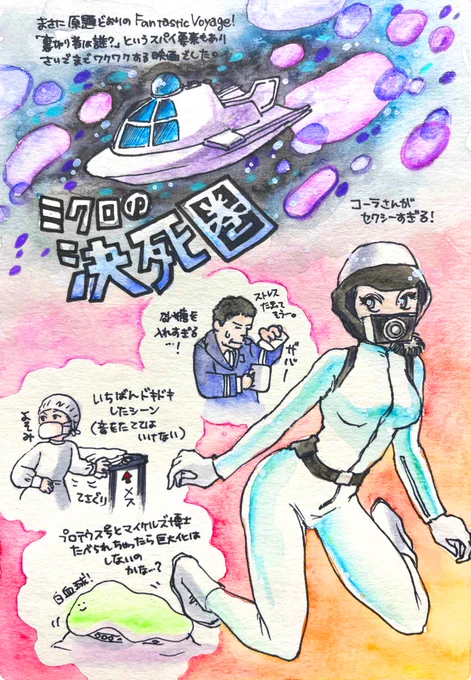 まさに原題どおりのFantastic Voyage!
「裏切り者は誰?」というスパイ要素もあり
さいごまでワクワクする映画でした。
ミクロの
決死圏
コーラさんが
セクシーすぎる!
砂糖を
入れすぎる
…!
ストレス
たまって
そう…。
ガバー
いちばんドキドキ
したシーン
(音をたてては
いけない)
よそみ
てさぐり
メス
プロテウス号とマイケルズ博士
たべられちゃったら巨大化は
しないの
かな…?
白血球!